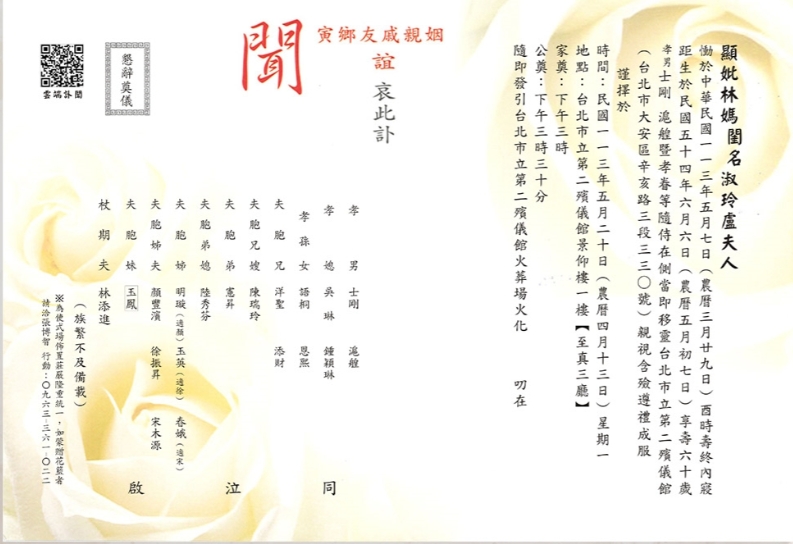 顯妣林媽閨名淑玲盧夫人
慟於中華民國一一三年五月七日（農曆三月廿九日）酉時壽終內寢
距生於民國五十四年六月六日（農曆五月初七日）享壽六十歲
孝男士剛 滬艎暨孝眷等隨侍在側當即移靈台北市立第二殯儀館
（台北市大安區辛亥路三段三三〇號）親視含殮遵禮成服
謹擇於
時間：民國一一三年五月二十日（農曆四月十三日）星期一
地點：台北市立第二殯儀館景仰樓一樓【至真三廳】
家奠：下午三時
公奠：下午三時三十分
隨即發引台北市立第二殯儀館火葬場火化 叨在
姻親戚友鄉寅
誼 哀此訃
聞
孝男 士剛 滬艎
孝媳 吳琳 鍾穎琳
孝孫女 語桐 恩熙
夫胞兄 洋聖 添財
夫胞兄嫂 陳瑞玲
夫胞弟 憲昇
夫胞弟媳 陸秀芬
夫胞姊 明璇（適顏）玉英（適徐）春娥（適宋）
夫胞姊夫 顏豐濱 徐振昇 宋木源
夫胞妹 玉鳳
杖期夫 林添進
同泣啟
（族繁不及備載）
※為使式場佈置莊嚴隆重統一，如榮贈花籃者
請洽張博智 行動：〇九六三-三六一-〇二二
懇辭奠儀
雲端訃聞